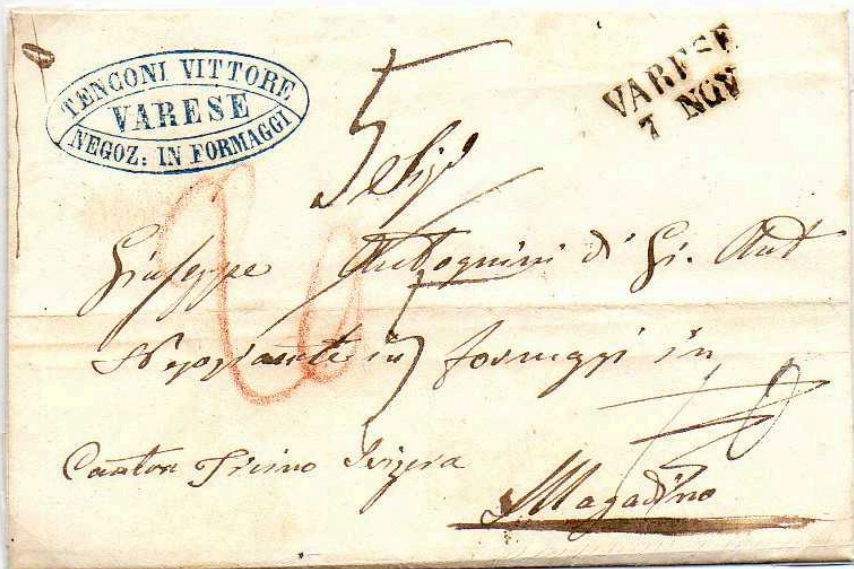 TENCONI VITTORE
VARESE
NEGOZ: IN FORMAGGI
VARESE
7 NOV
Giuseppe Antognini di Gi. Ant
Negoziante in formaggi in
Canton Ticino Svizera
Magadino